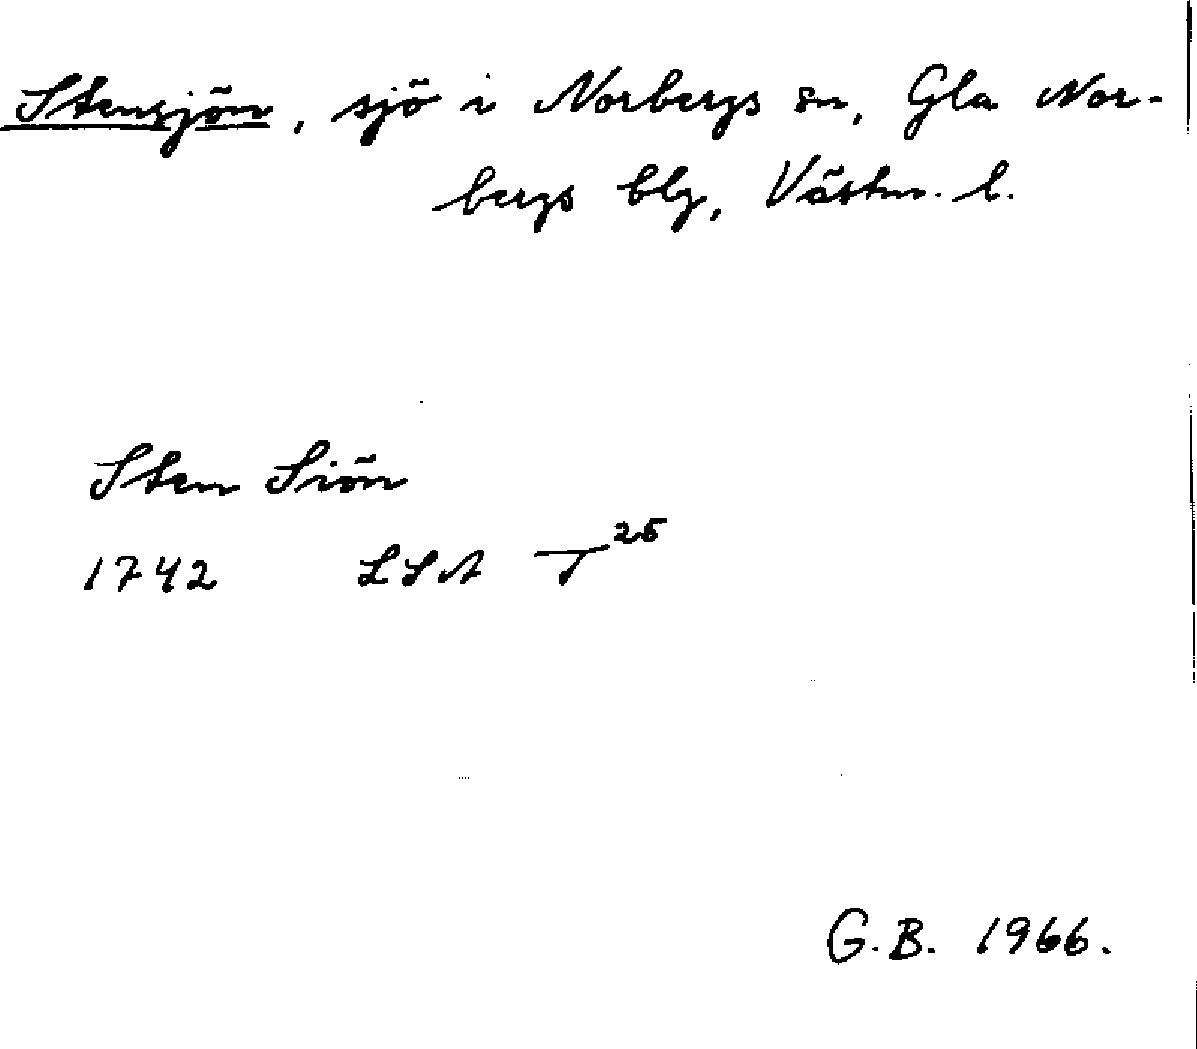 Stensjön, sjö i Norbergs sn, Gla Nor-
bergs blg, Västm. l.
Sten Siön
1742 LSA T25
G.B. 1966.